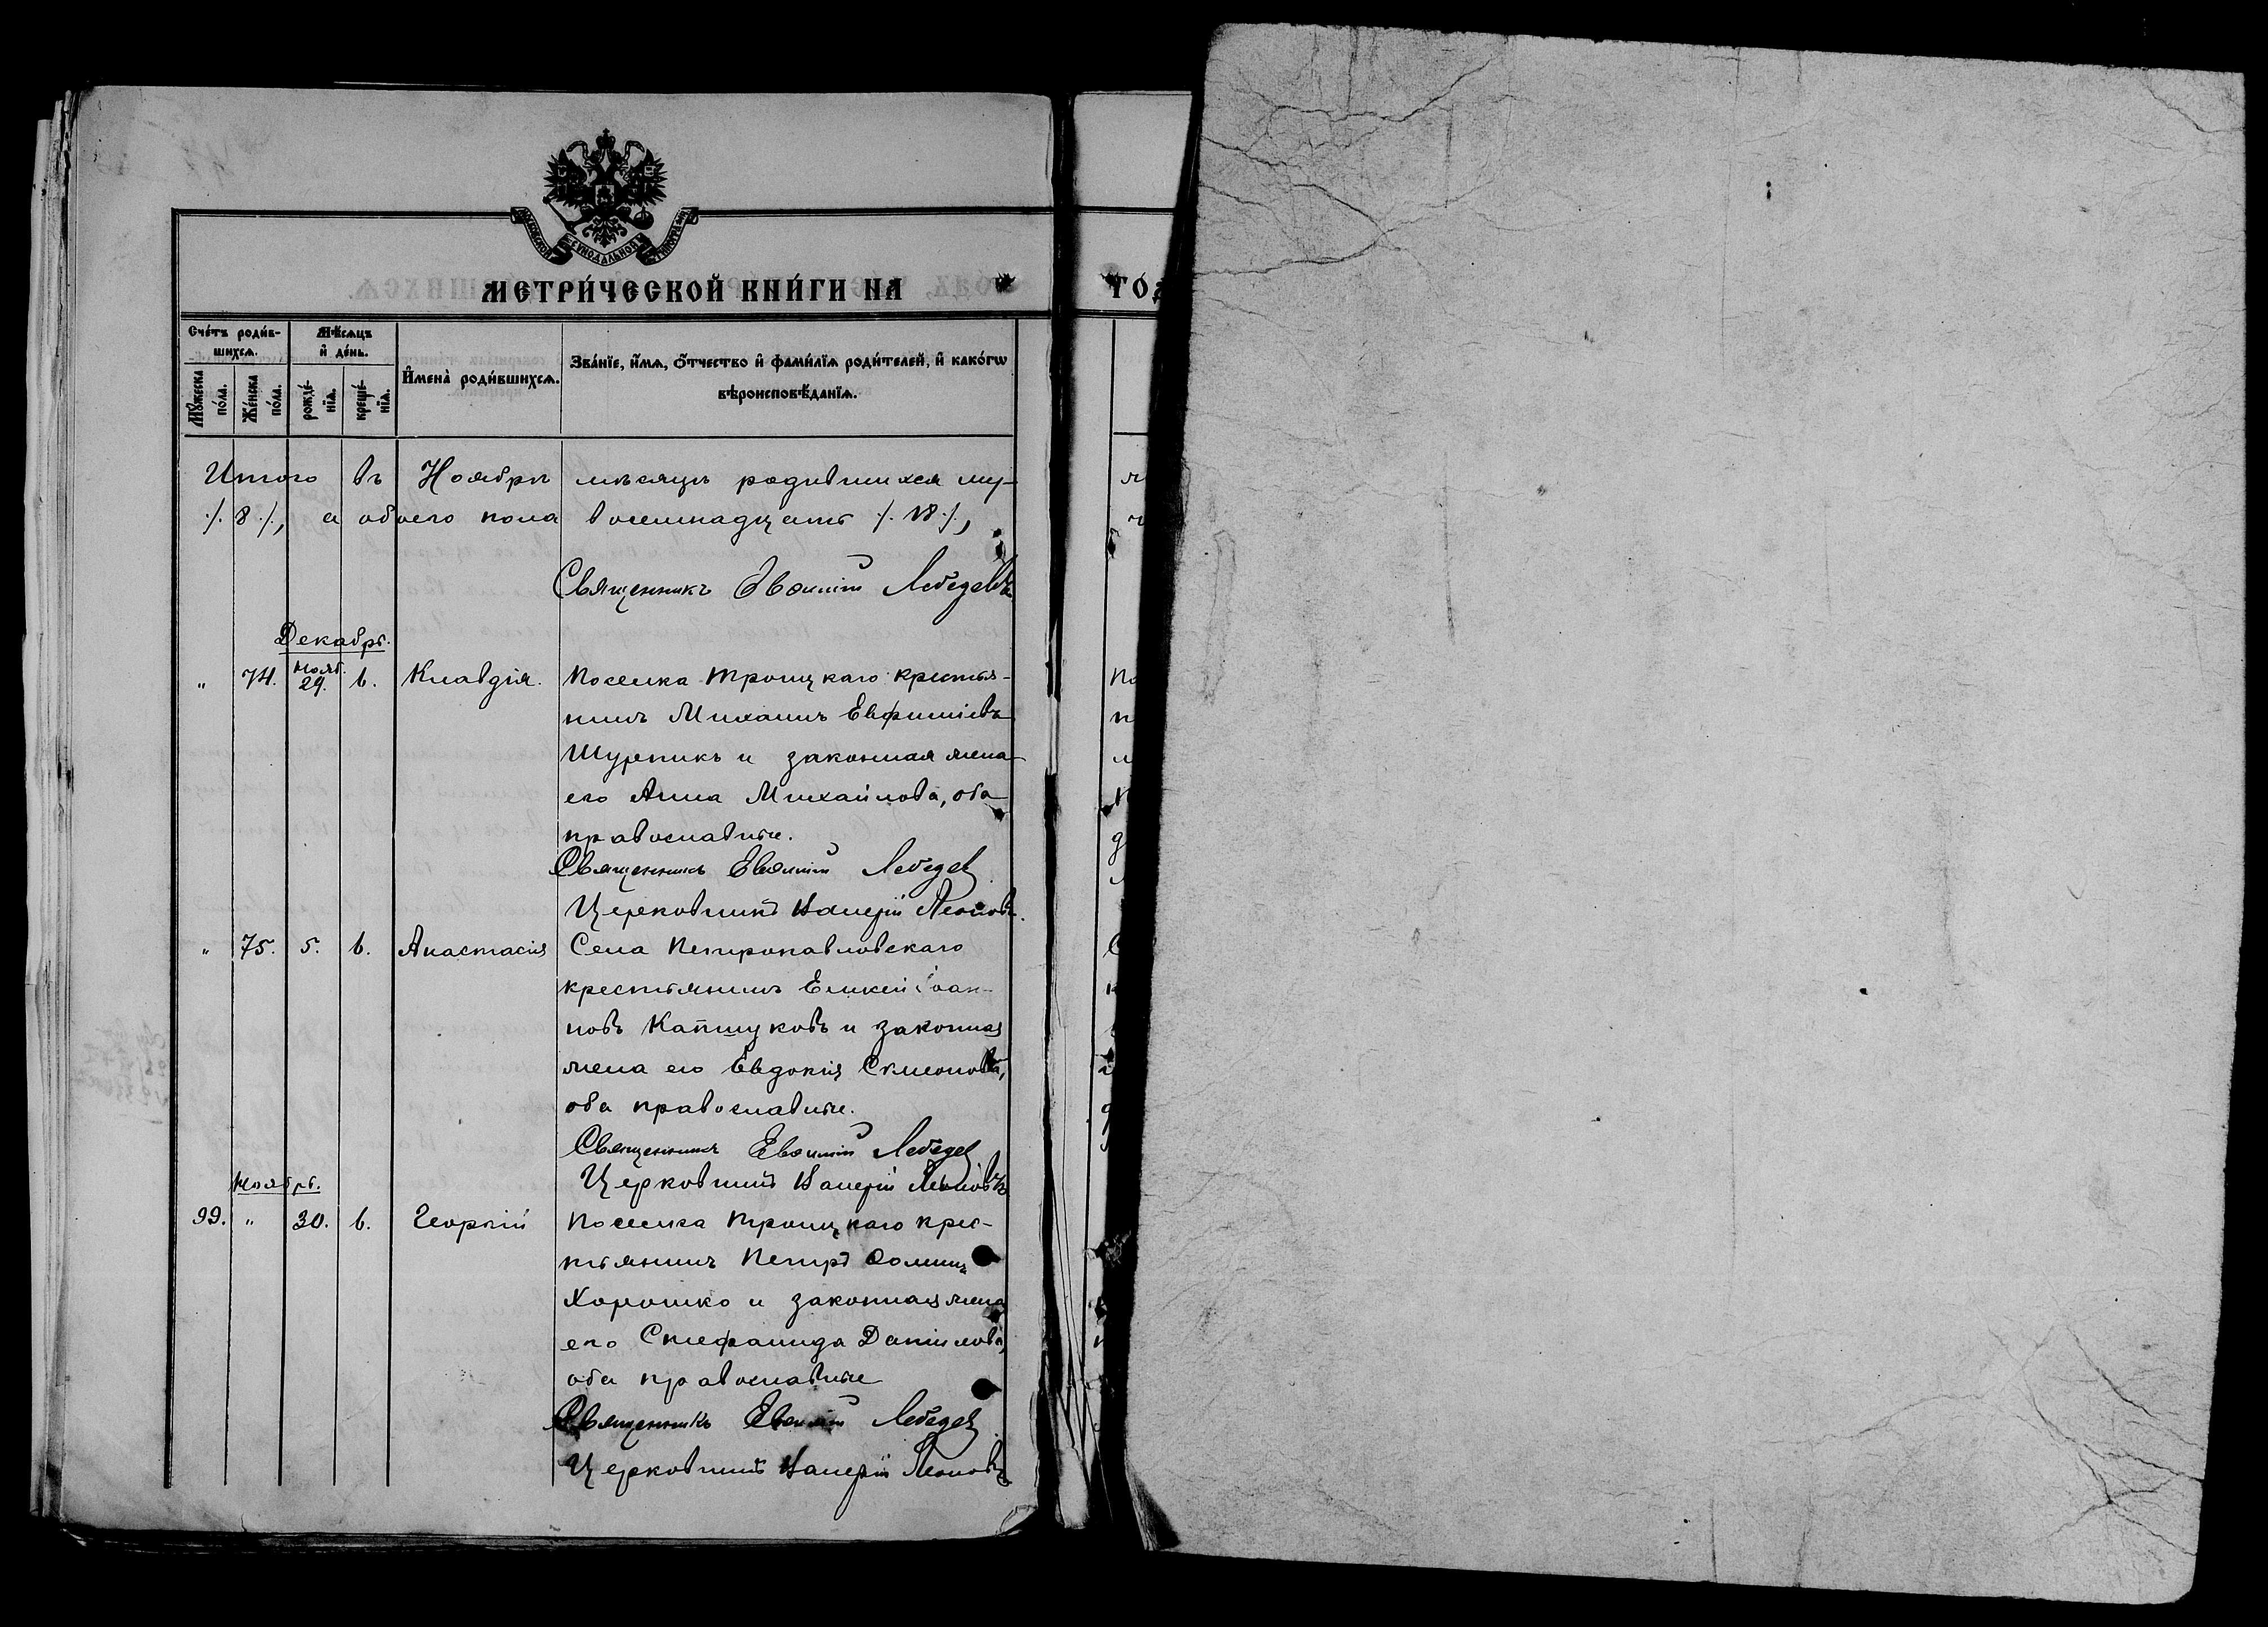 МОСКОВСКОЙ СѴНОДАЛЬНОЙ ТИПОГРАФІИ
МЕТРИ́ЧЕСКОЙ КНИ́ГИ НА
ГО
Сче́тъ роди́в-
шихсѧ.
Мѣ́сѧцъ
и҆ де́нь.
И҆мена̀ роди́вшихсѧ.
Зва́нїе, и҆́мѧ, ѻ҆́тчество и҆ фами́лїѧ роди́телей, и҆ како́гѡ
вѣроисповѣ́данїѧ.
Мꙋ́жеска по́ла.
Же́нска по́ла.
рожде́-нїѧ.
креще́-нїѧ.
Итого въ Ноябрѣ мѣсяцѣ родившихся му-
/. 8 /., а обоего пола восемнадцать /. 18 /.,
Священникъ Евѳимій Лебедевъ
Декабрь.
" 74. Нояб. 29. 6. Клавдія. Поселка Троицкаго крестья-
нинъ Михаилъ Евфиміевъ
и законная жена
его Анна Михайлова, оба
православные.
Священникъ Евѳимій Лебедев
Церковникъ Валерій Леоновъ.
" 75. 5. 6. Анастасія Села Петропавловскаго
крестьянинъ Елисей Іоан-
новъ Капшуковъ и законная
жена его Евдокія Сѵмеонова,
оба православные.
Священникъ Евѳимій Лебедев
Церковникъ Валерій Леоновъ
Ноябрь.
99. " 30. 6. Георгій Поселка Троицкаго крес-
тьянинъ Петръ Ѳоминъ
Хорошко и законная жена
его Стефанида Даніилова,
оба православные
Священникъ Евѳимій Лебедев
Церковникъ Валерій Леоновъ